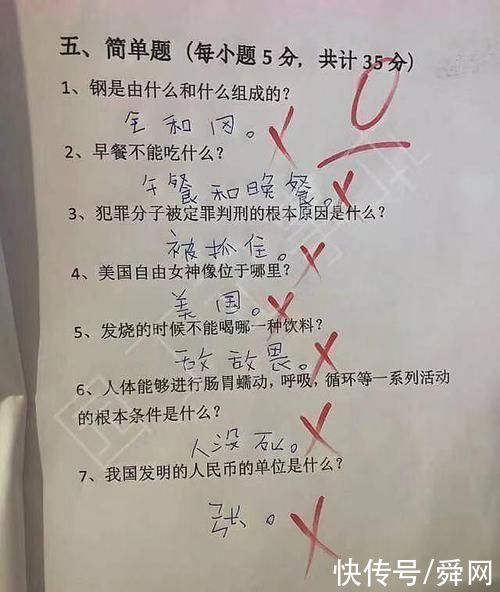 五、简单题（每小题5分，共计35分）
0
1、钢是由什么和什么组成的？
全和冈。
2、早餐不能吃什么？
午餐和晚餐。
3、犯罪分子被定罪判刑的根本原因是什么？
被抓住。
4、美国自由女神像位于哪里？
美国。
5、发烧的时候不能喝哪一种饮料？
敌敌畏。
6、人体能够进行肠胃蠕动，呼吸，循环等一系列活动
的根本条件是什么？
人没死。
7、我国发明的人民币的单位是什么？
张。
快传号/舜网